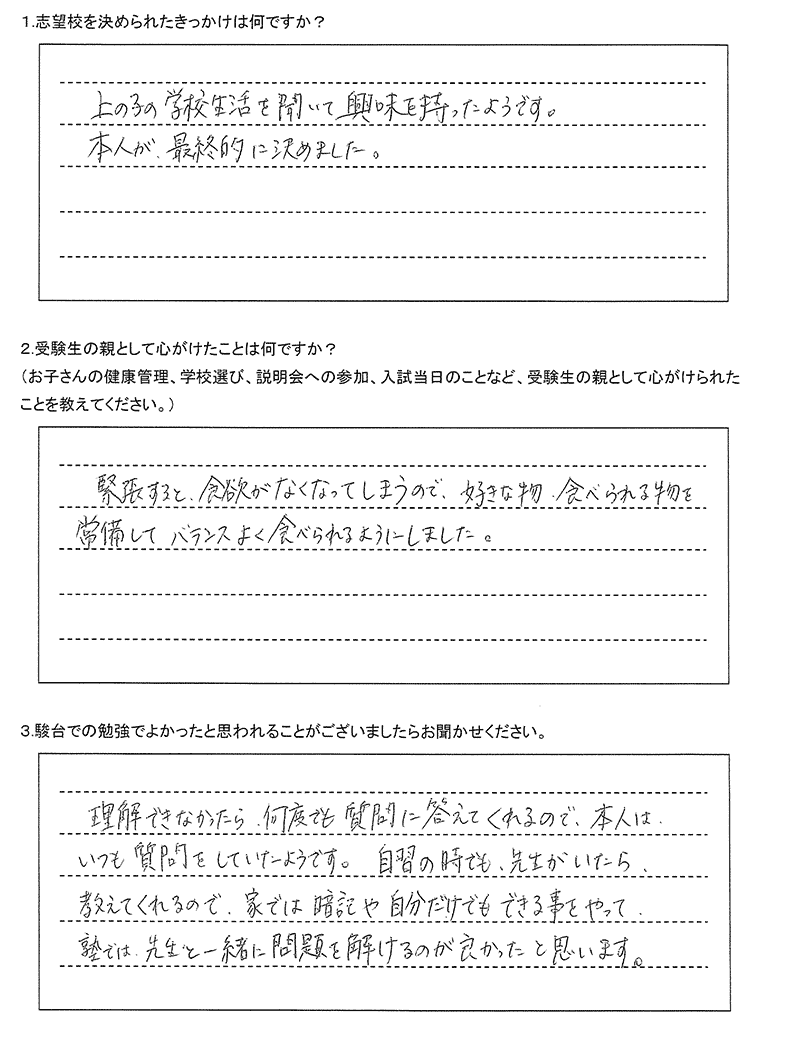 1.志望校を決められたきっかけは何ですか？
上の子の学校生活を聞いて興味を持ったようです。
本人が、最終的に決めました。
2.受験生の親として心がけたことは何ですか？
（お子さんの健康管理、学校選び、説明会への参加、入試当日のことなど、受験生の親として心がけられた
ことを教えてください。）
緊張すると、食欲がなくなってしまうので、好きな物、食べられる物を
常備してバランスよく食べられるようにしました。
3.駿台での勉強でよかったと思われることがございましたらお聞かせください。
理解できなかたら、何度でも質問に答えてくれるので、本人は、
いつも質問をしていたようです。自習の時でも、先生がいたら、
教えてくれるので、家では暗記や自分だけでもできる事をやって、
塾では、先生と一緒に問題を解けるのが良かったと思います。